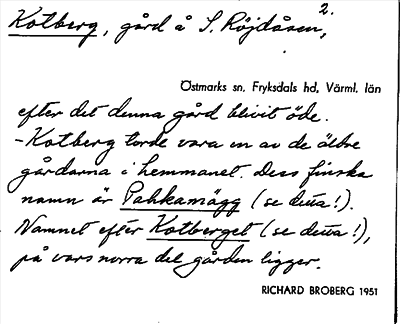 Kotberg, gård å S. Röjdåsen, 2.
Östmarks sn. Fryksdals hd, Värml. län
efter det denna gård blivit öde.
- Kotberg torde vara en av de äldre
gårdarna i hemmanet. Dess finska
namn är Pahkamägg (se detta!).
Namnet efter Kotberget (se detta!),
på vars norra del gården ligger.
RICHARD BROBERG 1951